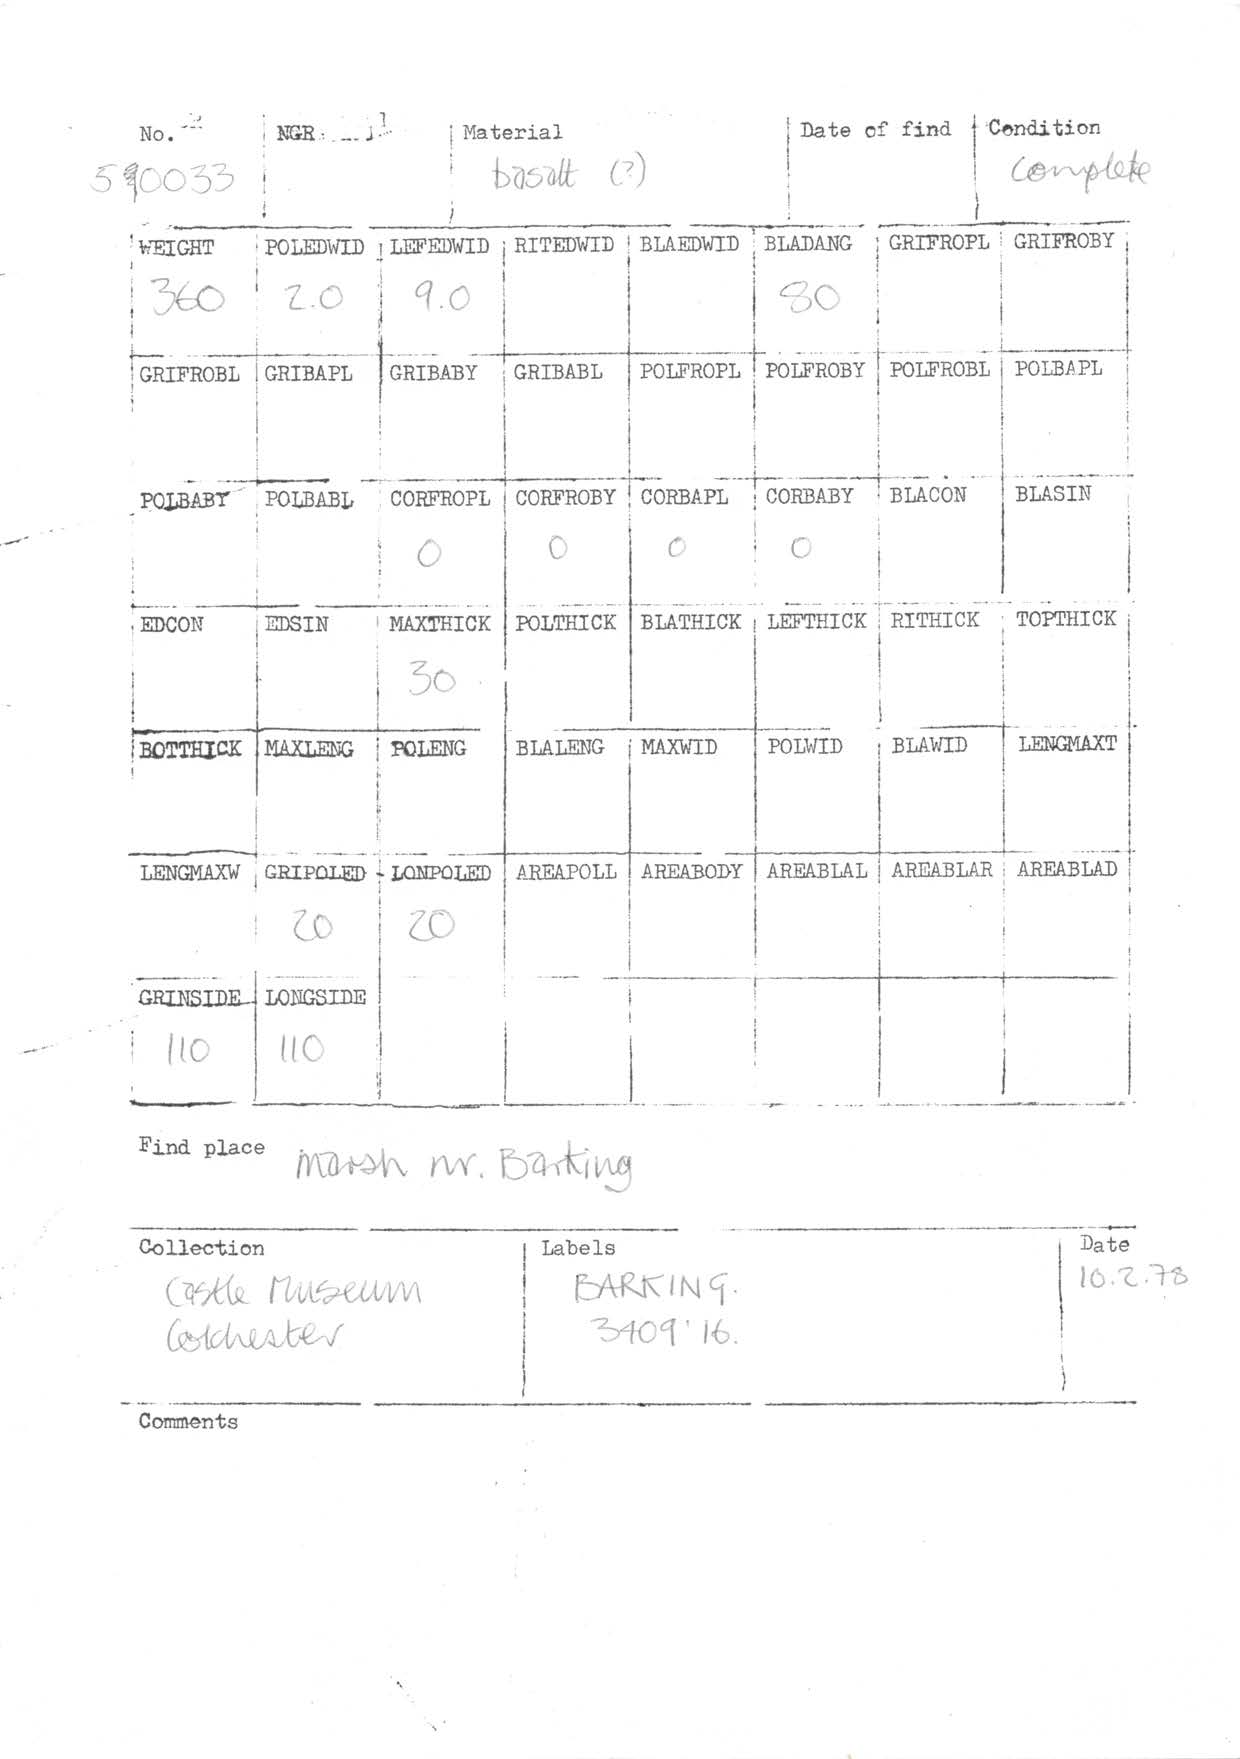 No. NGR. Material Date of find Condition
590033 basalt (?) complete
WEIGHT POLEDWID LEFEDWID RITEDWID BLAEDWID BLADANG GRIFROPL GRIFROBY
360 2.0 9.0 80
GRIFROBL GRIBAPL GRIBABY GRIBABL POLFROPL POLFROBY POLFROBL POLBAPL
POLBABY POLBABL CORFROPL CORFROBY CORBAPL CORBABY BLACON BLASIN
0 0 0 0
EDCON EDSIN MAXTHICK POLTHICK BLATHICK LEFTHICK RITHICK TOPTHICK
30
BOTTHICK MAXLENG POLENG BLALENG MAXWID POLWID BLAWID LENGMAXT
LENGMAXW GRIPOLED LONPOLED AREAPOLL AREABODY AREABLAL AREABLAR AREABLAD
20 20
GRINSIDE LONGSIDE
110 110
Find place marsh nr. Barking
Collection Labels Date
Castle Museum BARKING. 10.2.78
Colchester 3409'16.
Comments